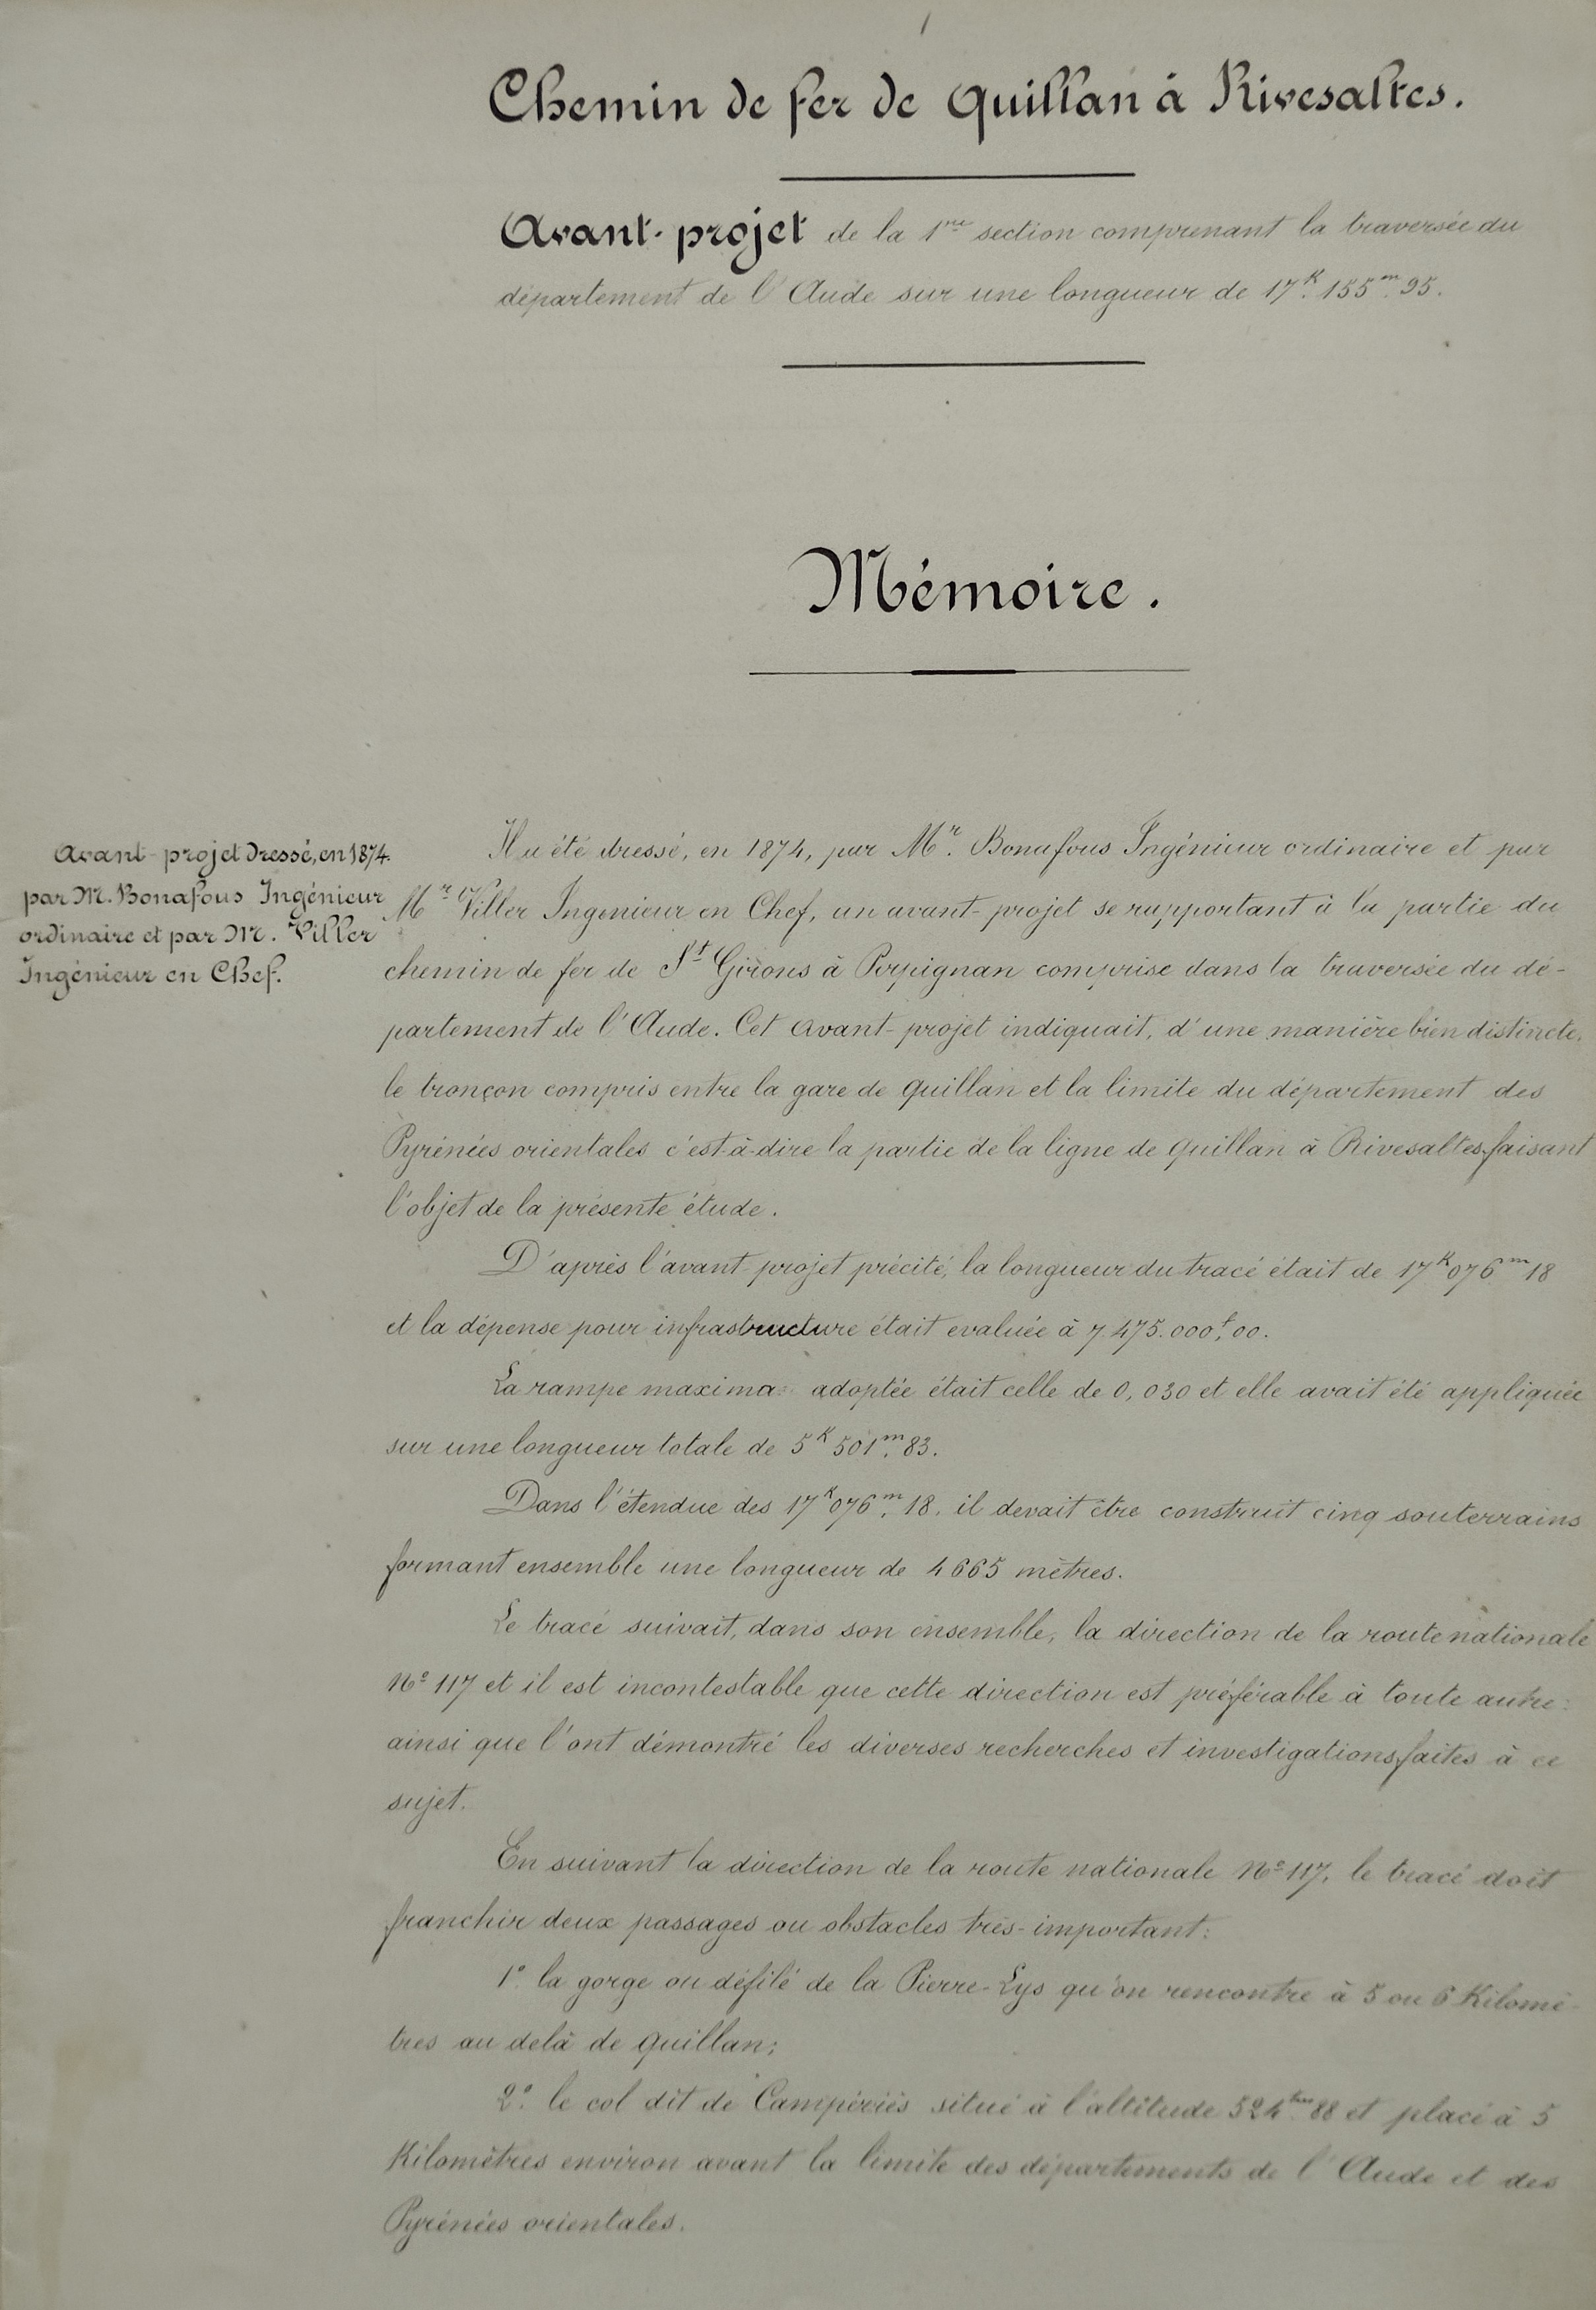 Chemin de fer de Quillan à Rivesaltes.
Avant-projet de la 1re section comprenant la traversée du
département de l'Aude sur une longueur de 17K.155m.95.
Mémoire.
Avant-projet dressé, en 1874.
par M. Bonafous Ingénieur
ordinaire et par Mr. Viller
Ingénieur en Chef.
Il a été dressé, en 1874, par Mr. Bonafous Ingénieur ordinaire et par
Mr Viller Ingenieur en Chef, un avant-projet se rapportant à la partie du
chemin de fer de St Girons à Perpignan comprise dans la traversée du dé-
partement de l'Aude. Cet avant-projet indiquait, d'une manière bien distincte,
le tronçon compris entre la gare de Quillan et la limite du département des
Pyrénées orientales c'est-à-dire la partie de la ligne de Quillan à Rivesaltes faisant
l'objet de la présente étude.
D'après l'avant-projet précité, la longueur du tracé était de 17K076m18
et la dépense pour infrastructure était evaluée à 7.475.000f,00.
La rampe maxima adoptée était celle de 0,030 et elle avait été appliquée
sur une longueur totale de 5K501m.83.
Dans l'étendue des 17K076m.18. il devait être construit cinq souterrains
formant ensemble une longueur de 4665 mètres.
Le tracé suivait, dans son ensemble, la direction de la route nationale
No 117 et il est incontestable que cette direction est préférable à toute autre:
ainsi que l'ont démontré les diverses recherches et investigations faites à ce
sujet.
En suivant la direction de la route nationale No 117, le tracé doit
franchir deux passages ou obstacles très-important:
1o. la gorge ou défilé de la Pierre-Lys qu'on rencontre à 5 ou 6 Kilomè-
tres au delà de Quillan;
2o. le col dit de Campériès situé à l'altitude 524m.88 et placé à 5
Kilomètres environ avant la limite des départements de l'Aude et des
Pyrénées orientales.